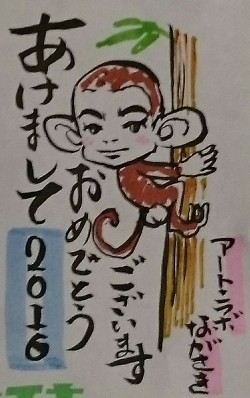 あけまして
おめでとう
ございます
2016
アートラボ
ながさき